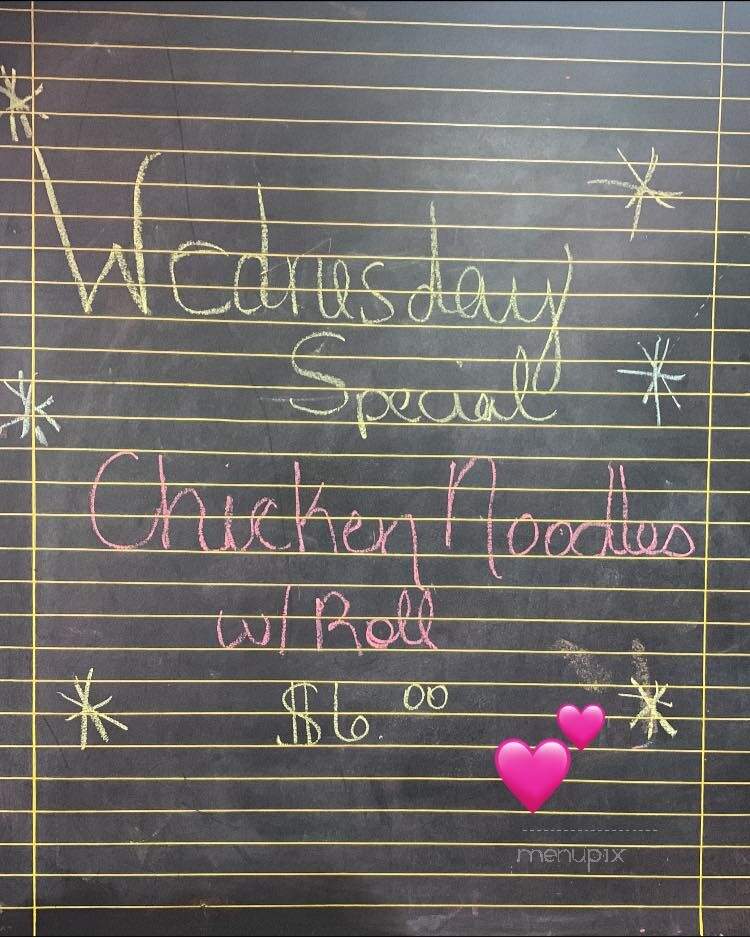 Wednesday
Special
Chicken Noodles
w/ Roll
$6.00
menupix